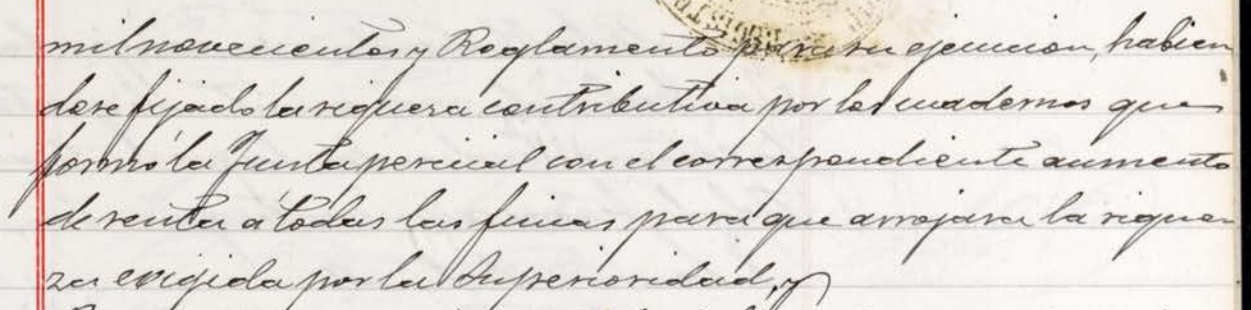 mil novecientos y Reglamento para su ejecucion, habien
dose fijado la riqueza contributiva por los cuadernos que
formó la Junta pericial con el correspondiente aumento
de renta á todas las fincas para que arrojara la rique
za exigida por la Superioridad, y